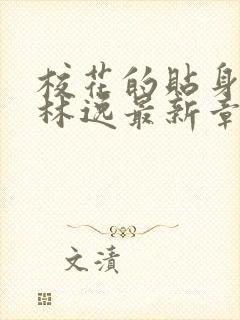 校花的貼身
林逸最新章
文漬